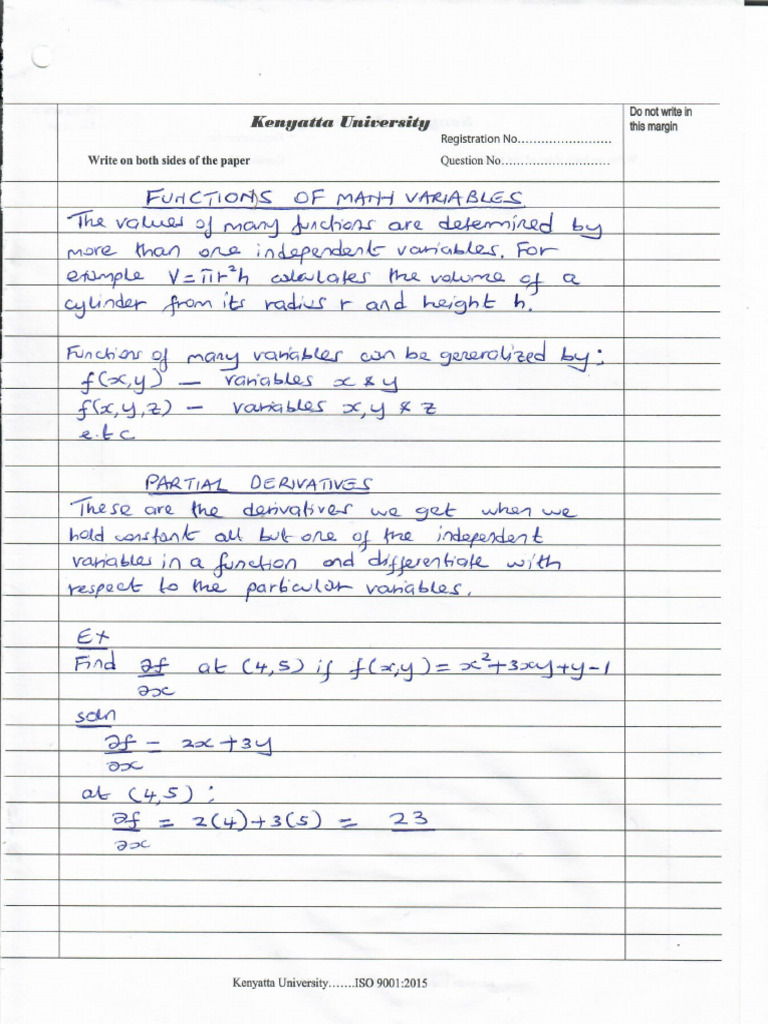 Do not write in
this margin
Kenyatta University
Registration No........................
Write on both sides of the paper
Question No...........................
FUNCTIONS OF MANY VARIABLES
The values of many functions are determined by
more than one independent variables. For
example V=πr²h calculates the volume of a
cylinder from its radius r and height h.
Functions of many variables can be generalized by:
f(x,y) — variables x & y
f(x,y,z) — variables x,y & z
e.t.c
PARTIAL DERIVATIVES
These are the derivatives we get when we
hold constant all but one of the independent
variables in a function and differentiate with
respect to the particular variables.
Ex
Find ∂f/∂x at (4,5) if f(x,y) = x²+3xy+y-1
soln
∂f/∂x = 2x+3y
at (4,5):
∂f/∂x = 2(4)+3(5) = 23
Kenyatta University.......ISO 9001:2015